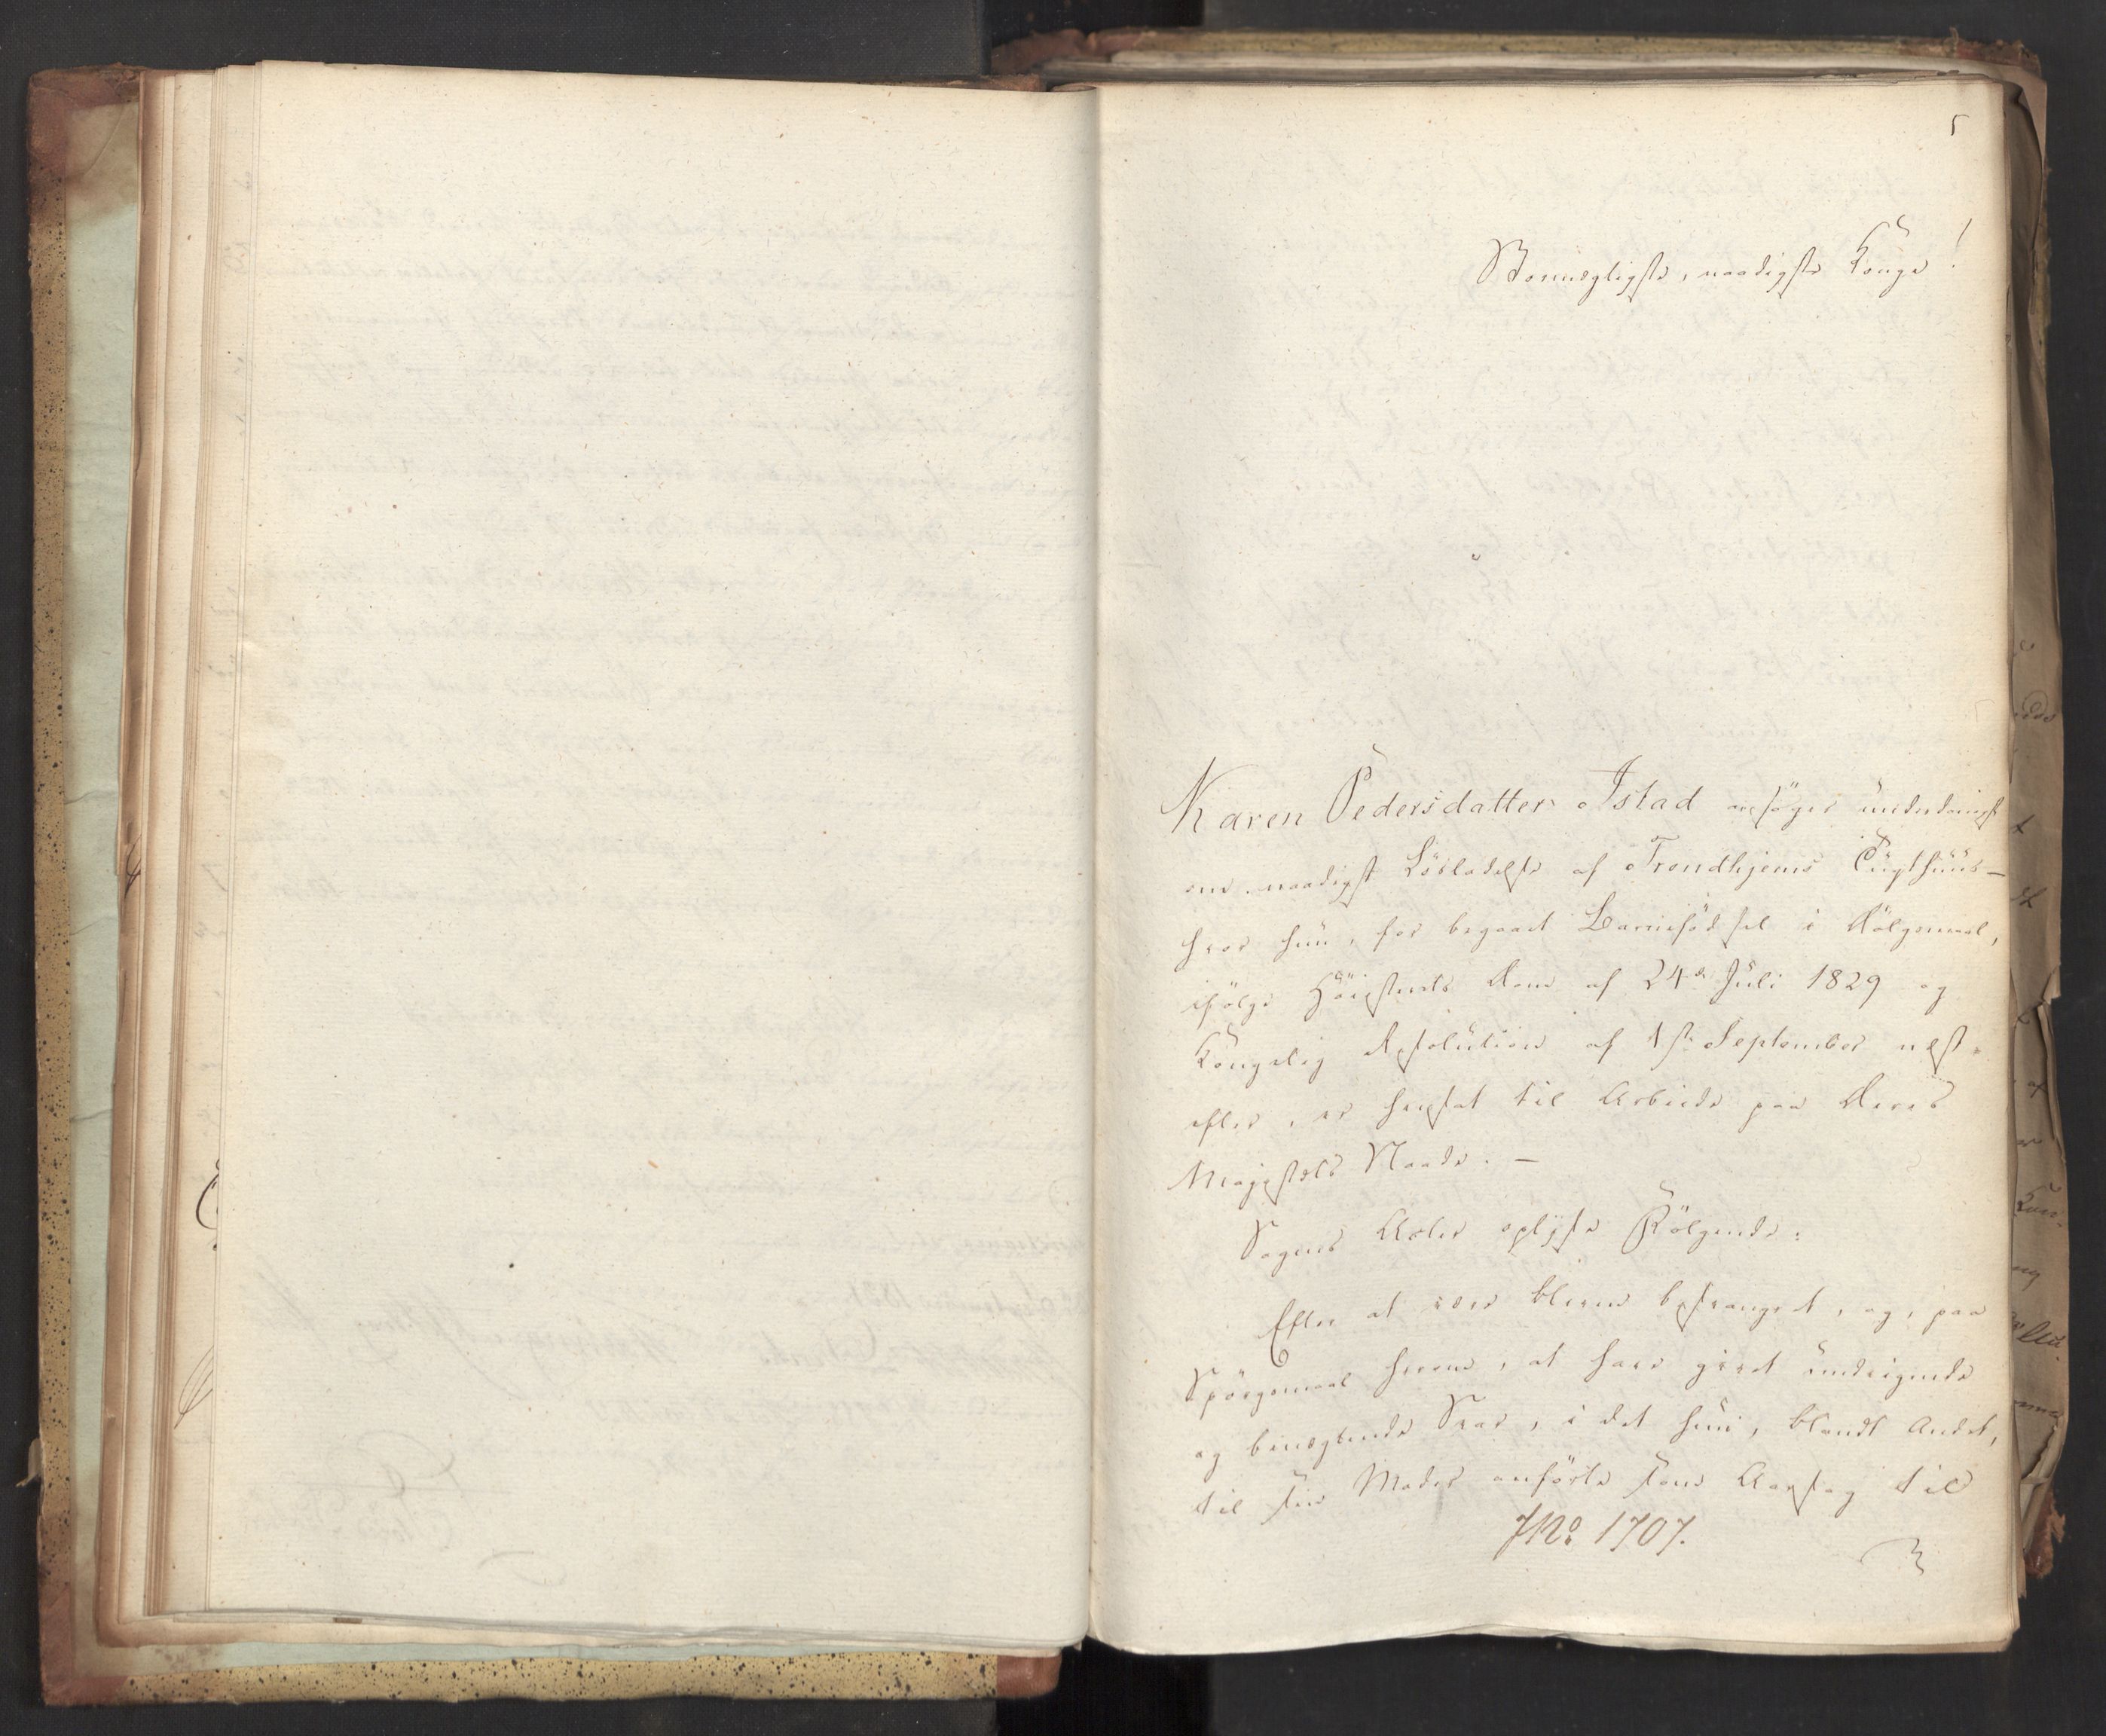 5
Stormægtigste, naadigste Konge!
Karen Pedersdatter Istad ansøger underdanigst
om naadigst Løsladelse af Trondhjems Tugthuus –
hvor hun, for begaaet Barnefødsel i Dølgsmaal,
ifølge Høiesterets Dom af 24de Juli 1829 og
Kongelig Resolution af 1ste September næst-
efter, er hensat til Arbeide paa Deres
Majestæts Naade. –
Sagens Acter oplyse Følgende:
Efter at være bleven besvangret, og, paa
Spørgsmaal herom, at have givet undvigende
og benægtende Svar, i det hun, blandt Andet,
til sin Moder anførte som Aarsag til
JNo 1707.